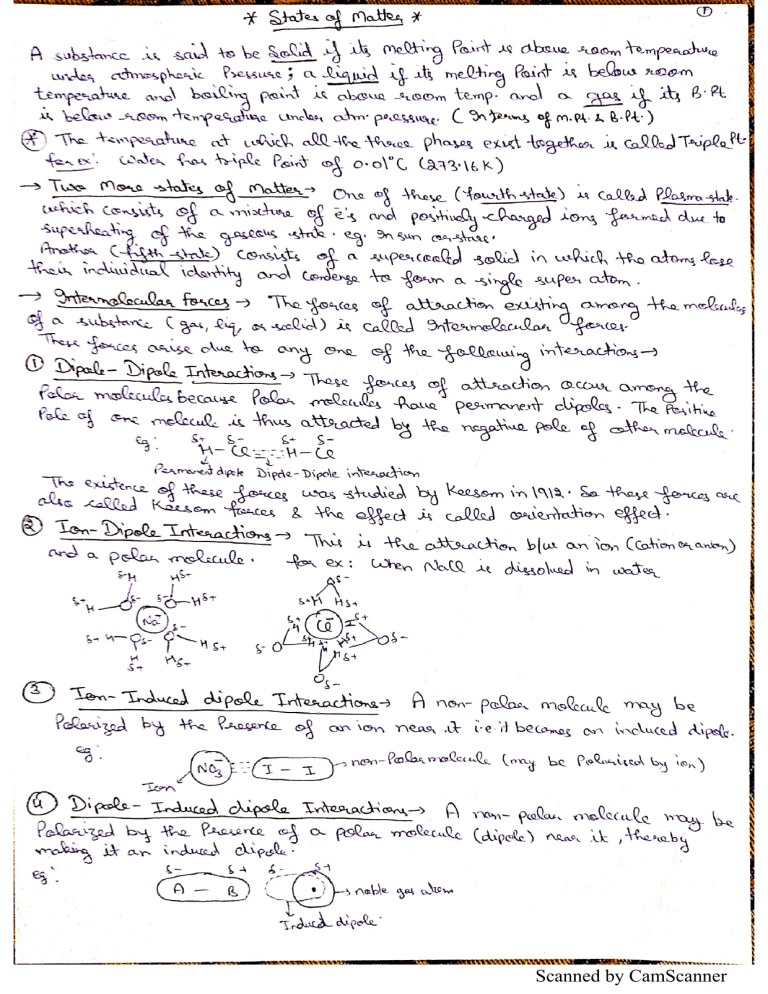 * States of Matter *
1
A substance is said to be Solid if its melting Point is above room temperature
under atmospheric Pressure; a liquid if its melting Point is below room
temperature and boiling point is above room temp. and a gas if its B.Pt
is below room temperature under atm. pressure. (In terms of m.pt. & B.Pt.)
* The temperature at which all the three phases exist together is called Triple Pt.
for ex: Water has triple Point of 0.01°C (273.16K)
→ Two More states of Matter → One of these (fourth state) is called Plasma state.
which consists of a mixture of e⁻s and positively charged ions formed due to
superheating of the gaseous state. eg. In sun or stars.
Another (fifth state) consists of a supercooled solid in which the atoms lose
their individual identity and condense to form a single super atom.
→ Intermolecular Forces → The forces of attraction existing among the molecules
of a substance (gas, liq. or solid) is called Intermolecular forces.
These forces arise due to any one of the following interactions →
① Dipole-Dipole Interactions → These forces of attraction occur among the
Polar molecules because Polar molecules have permanent dipoles. The Positive
Pole of one molecule is thus attracted by the negative pole of other molecule.
Eg: δ+ δ- δ+ δ-
H-Cl===H-Cl
Permanent dipole Dipole-Dipole interaction
The existence of these forces was studied by Keesom in 1912. So these forces are
also called Keesom forces & the effect is called orientation effect.
② Ion-Dipole Interactions → This is the attraction b/w an ion (Cation or anion)
and a polar molecule. for ex: When NaCl is dissolved in water
δ-H Hδ- Oδ-
δ+H Hδ+
δ-H O δ- δ- O-Hδ+
Na⁻ Cl⁻
δ+H-Oδ- O δ- H δ+ δ-O Oδ-
H δ+ Hδ+ Hδ+
Oδ-
③ Ion-Induced dipole Interactions → A non-polar molecule may be
Polarized by the Presence of an ion near it i.e it becomes an induced dipole.
eg: NO₃⁻ === I - I → non-Polar molecule (may be Polarised by ion)
Ion
④ Dipole-Induced dipole Interactions → A non-polar molecule may be
Polarized by the Presence of a polar molecule (dipole) near it, thereby
making it an induced dipole.
eg: δ- δ+ δ- δ+
A - B → noble gas atom
Induced dipole.
Scanned by CamScanner